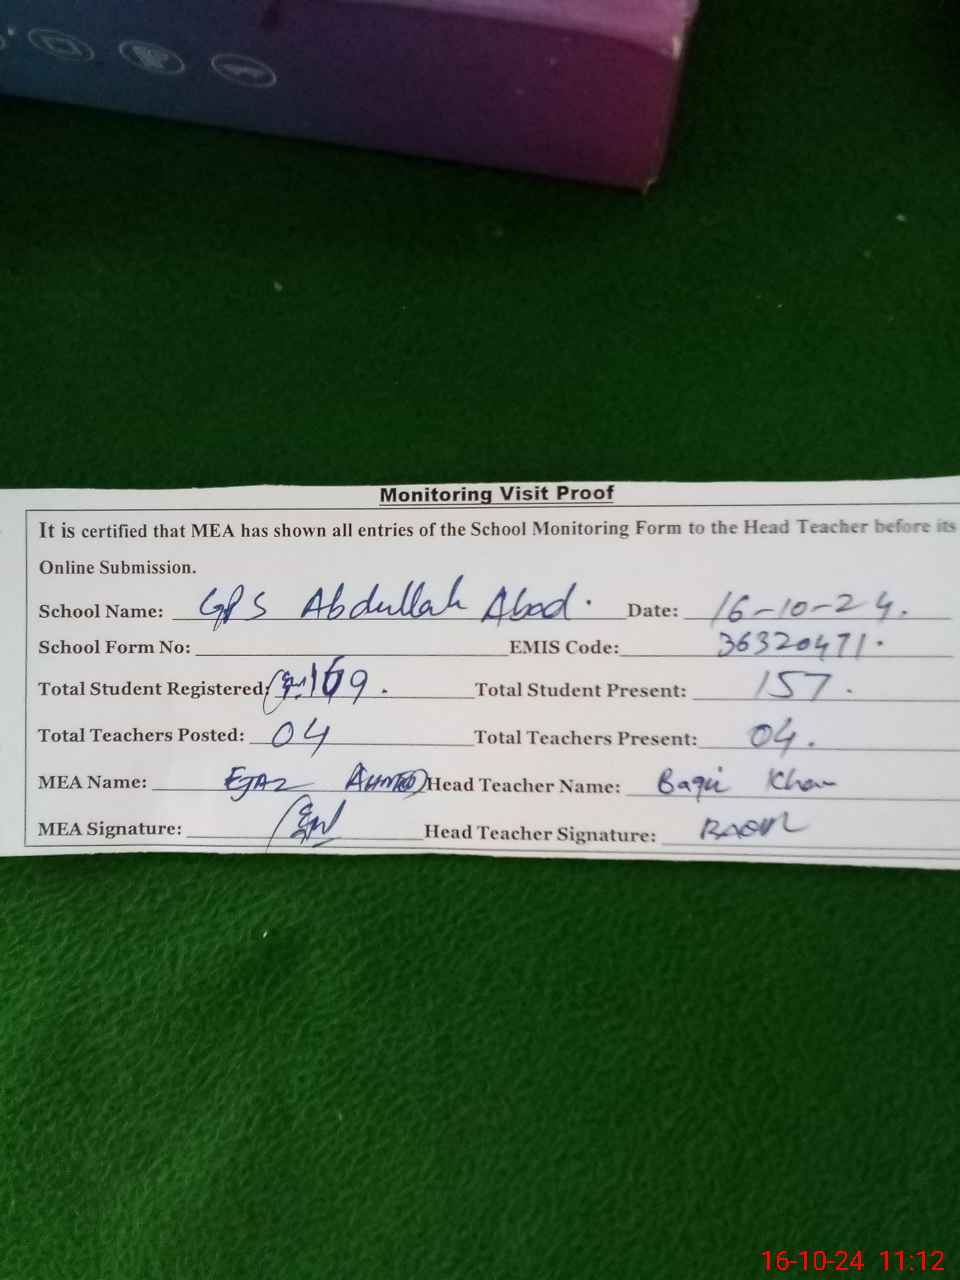 Monitoring Visit Proof
It is certified that MEA has shown all entries of the School Monitoring Form to the Head Teacher before its
Online Submission.
School Name: GPS Abdullah Abad. Date: 16-10-24.
School Form No: EMIS Code: 36320471.
Total Student Registered: 169. Total Student Present: 157.
Total Teachers Posted: 04 Total Teachers Present: 04.
MEA Name: EJAZ AHMED Head Teacher Name: Baqir Khan
MEA Signature: Head Teacher Signature:
16-10-24 11:12